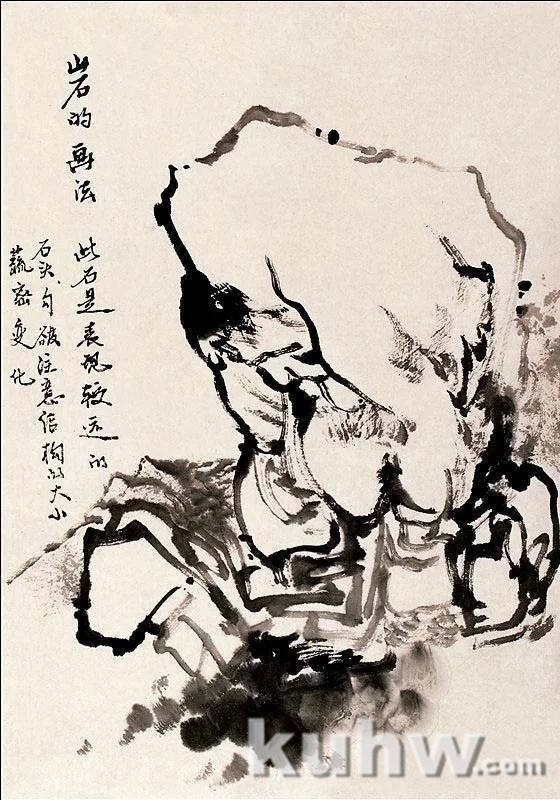 山石的画法 此石是表现较远的
石头、勾皴注意结构的大小
蔬密变化
kuhw.com